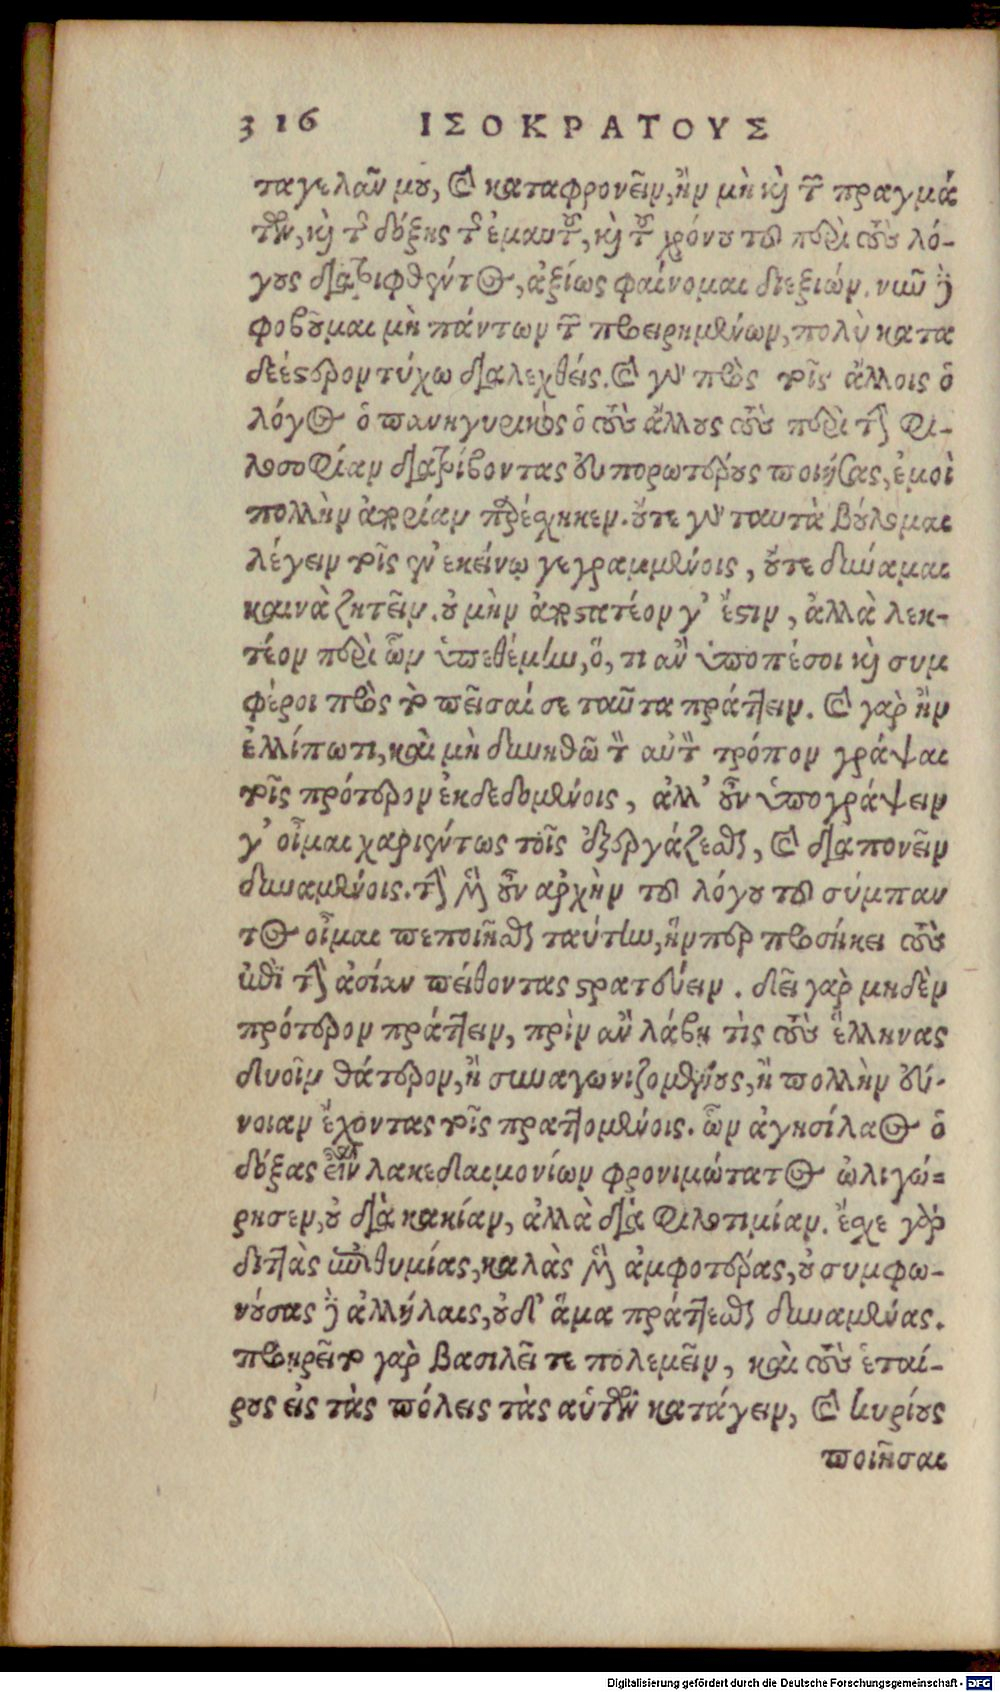 316 ΙΣΟΚΡΑΤΟΥΣ
ταγελᾶν μου, καὶ καταφρονεῖν, ἢν μὴ καὶ τῶν πραγμά
των, καὶ τῆς δόξης τῆς ἐμαυτοῦ, καὶ τοῦ χρόνου τοῦ περὶ τοὺς λό-
γους διατριφθέντος, ἀξίως φαίνομαι διεξιών. νῦν δὲ
φοβοῦμαι μὴ πάντων τῶν προειρημένων, πολὺ κατα
δεέστερον τύχω διαλεχθείς. καὶ γὰρ πρὸς τοῖς ἄλλοις ὁ
λόγος ὁ πανηγυρικὸς ὁ τοὺς ἄλλους τοὺς περὶ τὴν φι-
λοσοφίαν διατρίβοντας εὐπορωτέρους ποιήσας, ἐμοὶ
πολλὴν ἀπορίαν παρέσχηκεν. οὔτε γὰρ ταυτὰ βούλομαι
λέγειν τοῖς ἐν ἐκείνῳ γεγραμμένοις, οὔτε δύναμαι
καινὰ ζητεῖν. οὐ μὴν ἀποστατέον γ’ ἔστιν, ἀλλὰ λεκ-
τέον περὶ ὧν ὑπεθέμην, ὅ, τι ἂν ὑποπέσοι καὶ συμ
φέροι πρὸς τὸ πεῖσαί σε ταῦτα πράττειν. καὶ γὰρ ἢν
ἐλλίπω τι, καὶ μὴ δυνηθῶ τὸν αὐτὸν τρόπον γράψαι
τοῖς πρότερον ἐκδεδομένοις, ἀλλ’ οὖν ὑπογράψειν
γ’ οἶμαι χαριέντως τοῖς ἐξεργάζεσθαι, καὶ διαπονεῖν
δυναμένοις. τὴν μὲν οὖν ἀρχὴν τοῦ λόγου τοῦ σύμπαν
τος οἶμαι πεποιῆσθαι ταύτην, ἥνπερ προσήκει τοὺς
ἐπὶ τὴν ἀσίαν πείθοντας στρατεύειν. δεῖ γὰρ μηδὲν
πρότερον πράττειν, πρὶν ἂν λάβῃ τὶς τοὺς ἕλληνας
δυοῖν θάτερον, ἢ συναγωνιζομένους, ἢ πολλὴν εὔ-
νοιαν ἔχοντας τοῖς πραττομένοις. ὧν ἀγησίλαος ὁ
δόξας εἶναι λακεδαιμονίων φρονιμώτατος ὠλιγώ-
ρησεν, οὐ διὰ κακίαν, ἀλλὰ διὰ φιλοτιμίαν. ἔσχε γὰρ
διττὰς ἐπιθυμίας, καλὰς μὲν ἀμφοτέρας, οὐ συμφω-
νούσας δὲ ἀλλήλαις, οὐδ’ ἅμα πράττεσθαι δυναμένας.
προῃρεῖτο γὰρ βασιλεῖ τε πολεμεῖν, καὶ τοὺς ἑταί-
ρους εἰς τὰς πόλεις τὰς αὑτῶν κατάγειν, καὶ κυρίους
ποιῆσαι
Digitalisierung gefördert durch die Deutsche Forschungsgemeinschaft - DFG